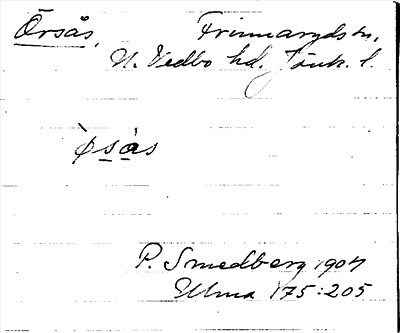 Örsås, Frinnaryds sn,
N. Vedbo hd. Jönk. l.
ø̀sas
P. Smedberg 1907
Ulma 175:205